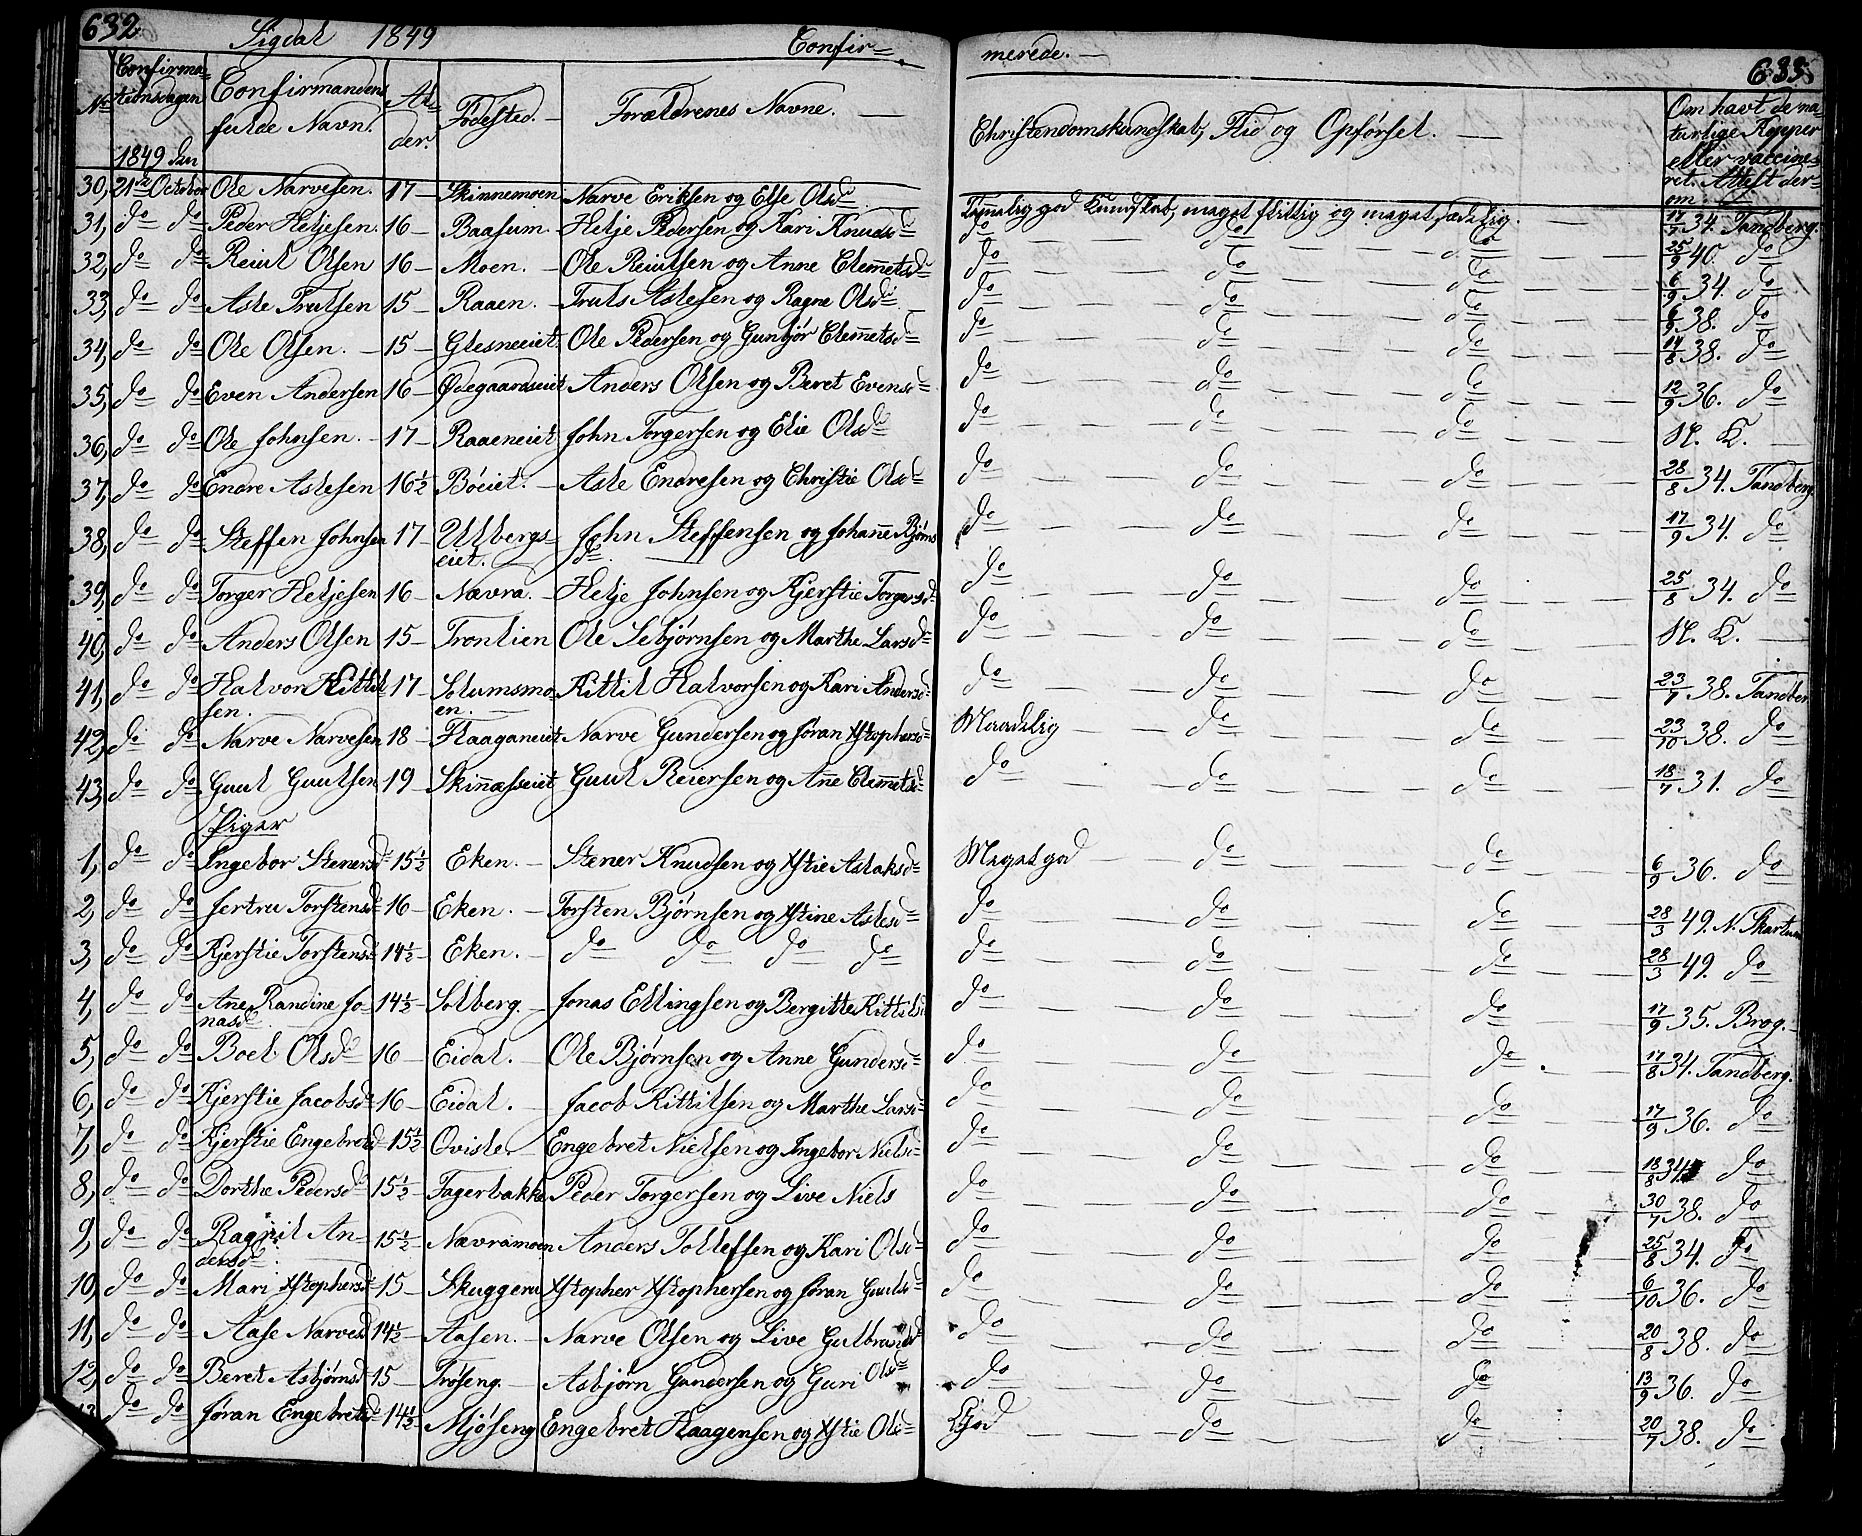 632
Sigdal 1849 Confir=
merede. —
633
No Confirma=tionsdagen 1849 den Confirmandens fulde Navn. Al=der. Fødested. — Forældrenes Navne. — Christendomskundskab, Flid og Opførsel. — Om havt de na=turlige Kopper eller vaccine=ret. Attest der=om.
30, 21de October Ole Narvesen. 17 — Skinnemoen Narve Eriksen og Else Olsd. Temmelig god Kundskab, meget flittig og meget sædelig. — 17/7 34. Tandberg.
31, do do Peder Heljesen. 16 — Baasum — Helje Pedersen og Kari Knudsd do — do — do — 25/9 40. do
32, do do Reiul Olsen 16 — Moen. — Ole Reiulsen og Anne Clemmetsd do — do — do — 6/9 34. do
33, do do Asle Trulsen 15 — Raaen. — Truls Aslesen og Ragne Olsd do — do — do — 6/9 38. do
34, do do Ole Olsen. — 15 — Glesneeiet Ole Pedersen og Gunbjør Clemmetsd do — do — do — 14/8 38. do
35, do do Even Andersen 16 — Ødegaardseiet Anders Olsen og Beret Evensd do — do — do — 12/9 36. do
36, do do Ole Johnsen. — 17 — Raaeneiet John Torgersen og Elie Olsd do — do — do — N. K. —
37, do do Endre Aslesen 16½ Bøeiet. — Asle Endresen og Christie Olsd do — do — do — 28/8 34. Tandberg
38, do do Steffen Johnsen 17 — Ulbergs eiet. — John Steffensen og Johanne Bjørns d. — do — do — do — 17/9 34. do
39, do do Torger Heljesen 16 — Nævra. — Helje Johnsen og Kjerstie Torgersd do — do — do — 25/8 34. do
40, do do Anders Olsen 15 — Tronlien Ole Sebjørnsen og Marthe Larsd do — do — do — N. K. —
41, do do Halvor Kittil sen. — 17 — Solumsmo en. — Kittil Halvorsen og Kari Andersd do — do — do — 23/7 38. Tandber
42, do do Narve Narvesen 18 — Haaganeiet Narve Gundersen og Jøran Xstophersd Maadelig — do — do — 23/10 38. do
43, do do Guul Guulsen 19 Skinnæsseiet Guul Reiersen og Anne Clemmetsd do — do — do — 18/7 31. do
Piger
1, do do Ingebor Stenersd 15½ Eken. — Stener Knudsen og Xstie Aslaksd Meget god — do — do — 6/9 36. do
2, do do Jertru Torstensd 16 — Eken. — Torsten Bjørnsen og Xstine Aslesd do — do — do — 28/3 49. N. Skartum
3, do do Kjerstie Torstensd 14½ — Eken. — do do do do do — do — do — 28/3 49. do
4, do do Ane Randine Jo=nasd 14½ — Solberg. — Jonas Ellingsen og Bergitte Kittilsd do — do — do — 17/9 35. Brog. —
5, do do Boel Olsd 16 — Eidal. — Ole Bjørnsen og Anne Gundersd do — do — do. — 17/8 34. Tandberg.
6, do do Kjerstie Jacobsd 16 — Eidal. — Jacob Kittilsen og Marthe Larsd do — do — do — 17/9 36. do
7, do do Kjerstie Engebretsd 15½ Qvisle. Engebret Nielsen og Ingebor Nielsd do — do — do — 18/8 34. do
8, do do Dorthe Pedersd 15½ Fagerbakke Peder Torgersen og Live Niels do — do — do — 30/7 38. do
9, do do Ragnil An dersd. 15½ Nævramoen Anders Tollefsen og Kari Olsd do — do — do — 25/8 34. do
10, do do Mari Xstophersd 15 — Skuggerud Xstopher Xstophersen og Jøran Guulsd do — do — do — 6/10 36. do
11, do do Aase Narvesd 14½ — Aasen. — Narve Olsen og Live Gulbrandsd do — do — do — 20/8 38. do
12, do do Beret Asbjørnsd 15 — Trøseng. — Asbjørn Gundersen og Guri Olsd do — do — do — 13/9 36. do
13, do do Jøran Engebretsd 14½ — Mjøseng Engebret Haagensen og Xstie Olsd God — do — do — 20/7 38. do